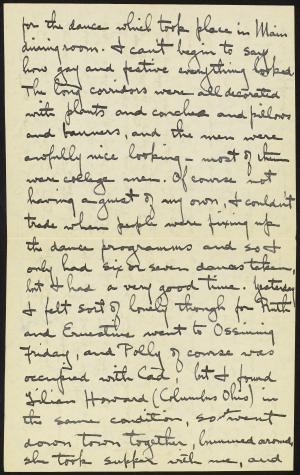 for the dance which took place in Main
dining room. I can't begin to say
how gay and festive everything looked.
The long corridors were all decorated
with plants and couches and pillows
and banners, and the men were
awfully nice looking - most of them
were college men. Of course not
having a guest of my own, I couldn't
trade when people were fixing up
the dance programms and so I
only had six or seven dances taken,
but I had a very good time. Yesterday
I felt sort of lonely though for Ruth
and Ernestine went to Ossining
Friday, and Polly of course was
occupied with Cad, but I found
Lilian Howard (Columbus Ohio) in
the same condition, so went
down town together, bummed around,
she took supper with me, and